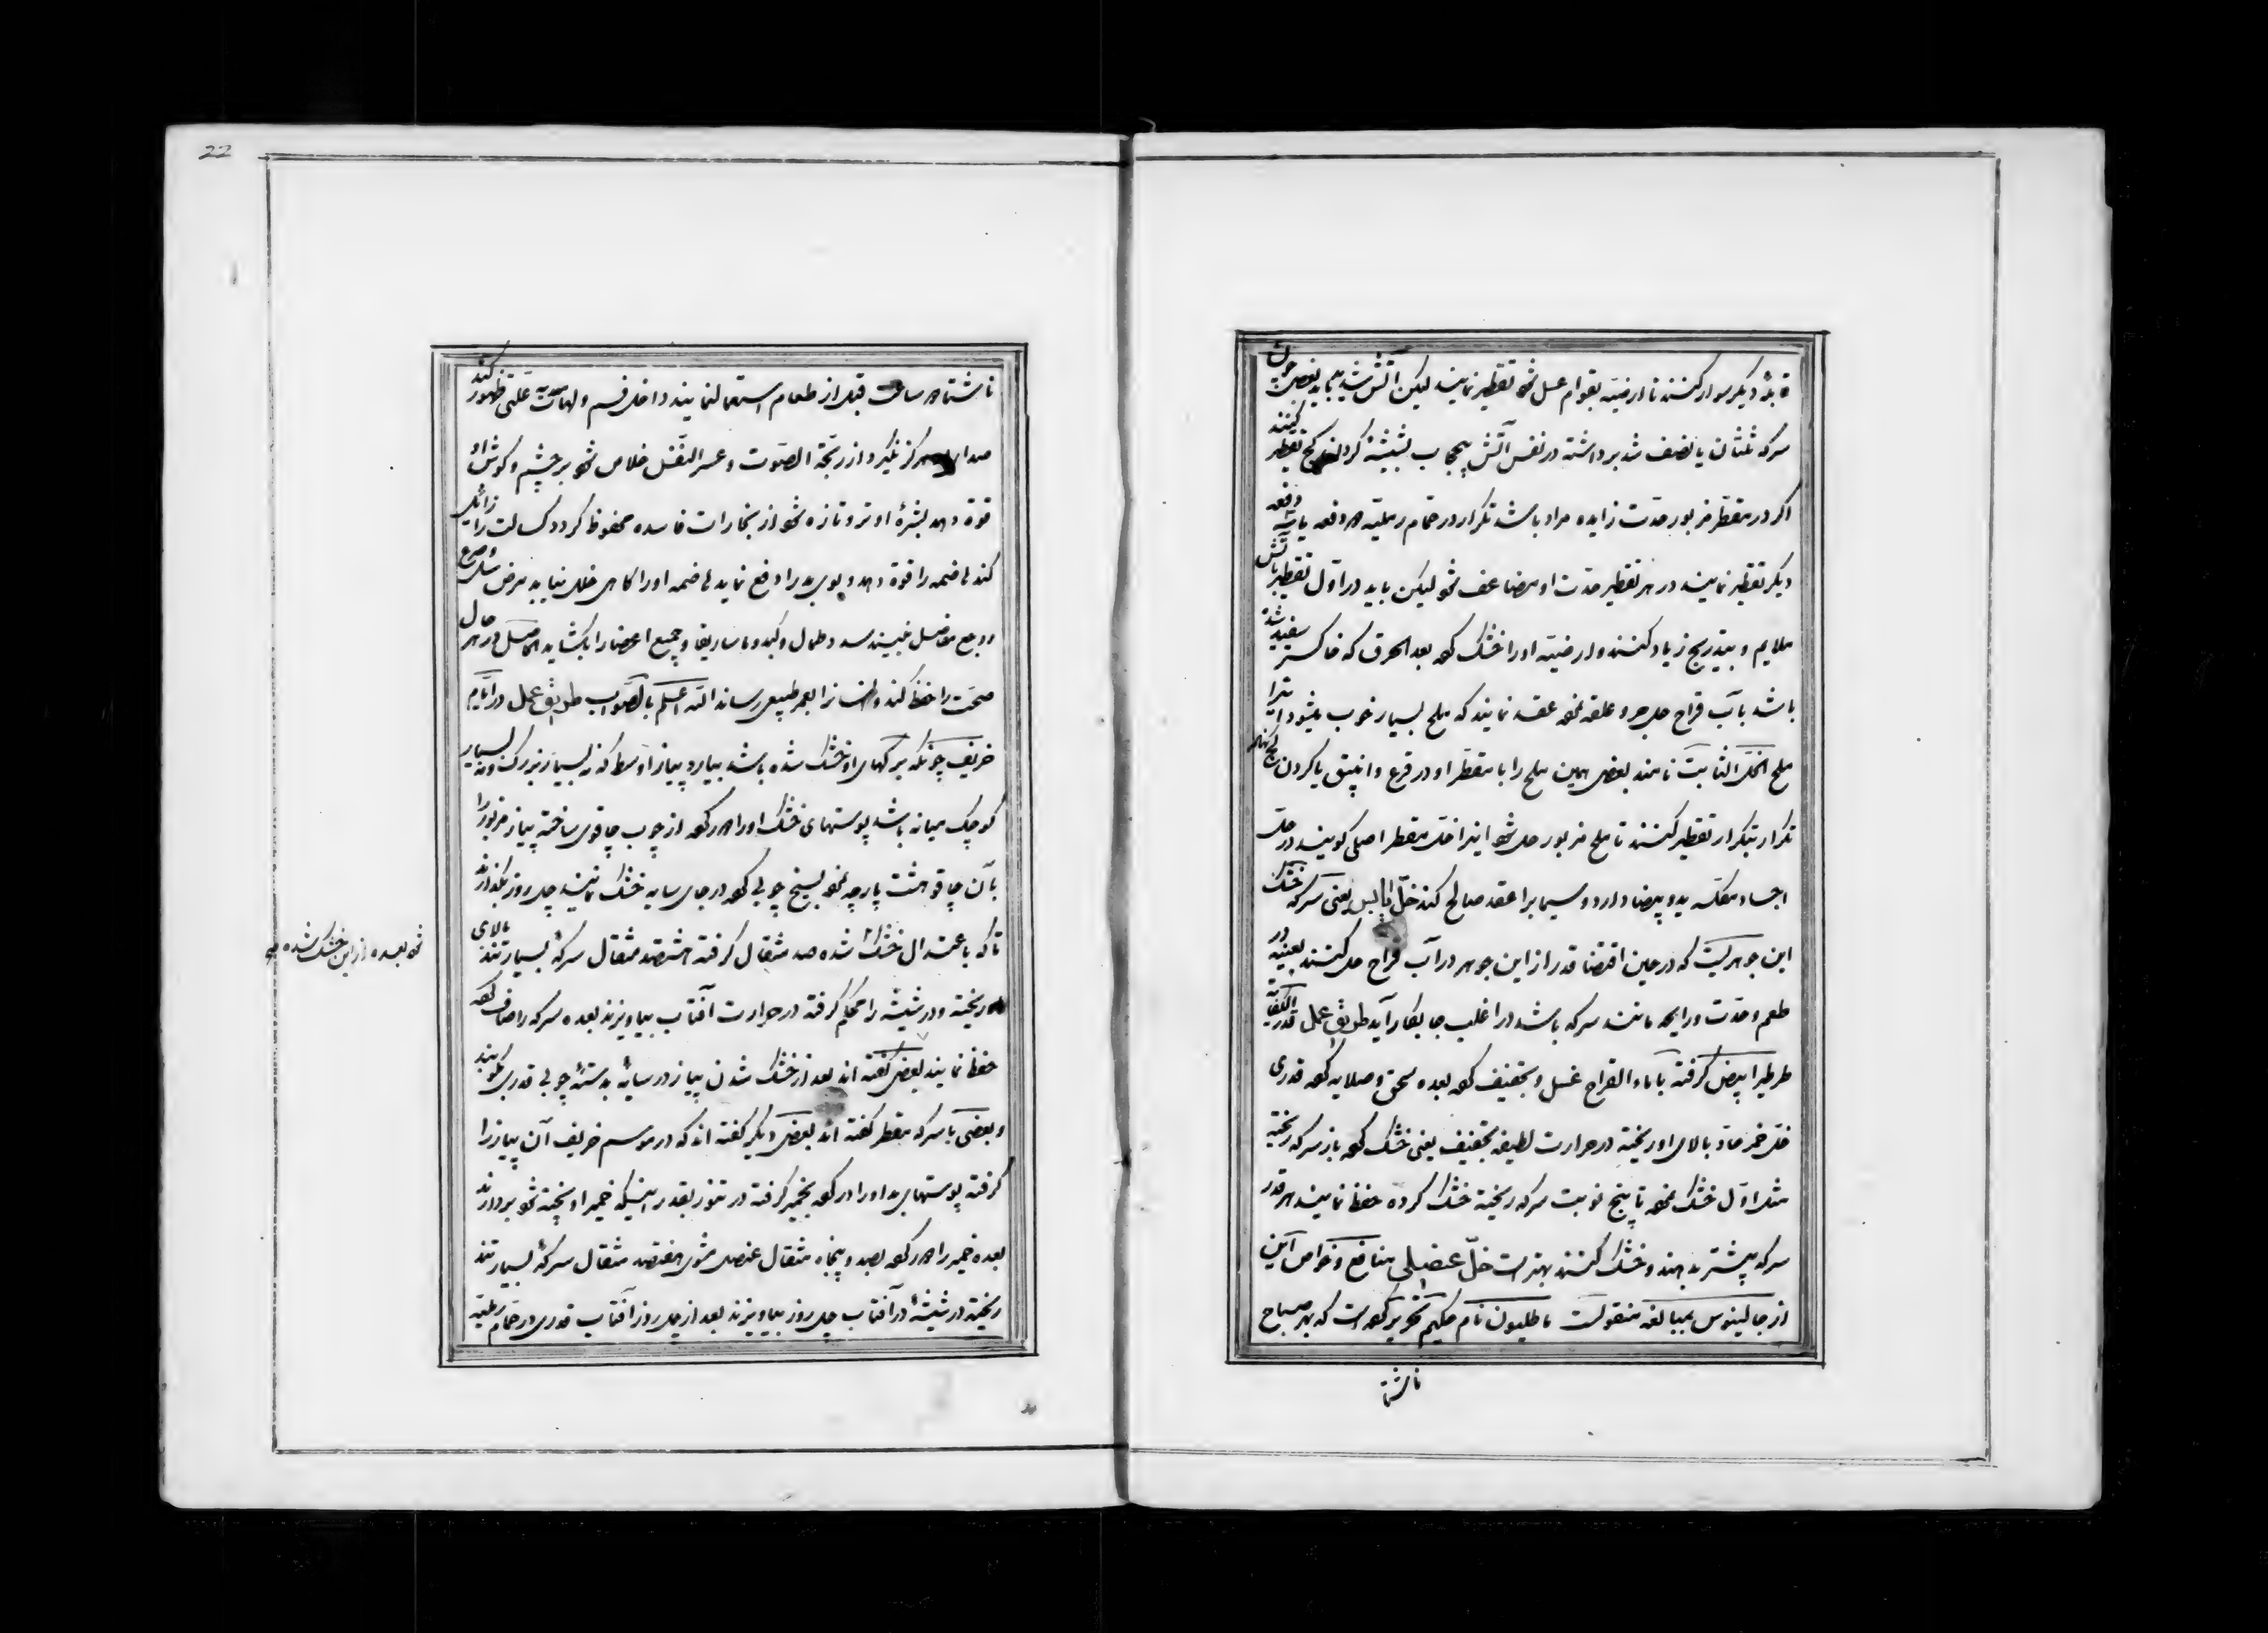 قابلهٔ دیگر سوار کنند تا ارضیّه بقوام عسل شود تقطیر نمایند لیکن آتش شدید نباید بعضی
سرکه ثلثان یا نصف شد برداشته در نفس آتش بیحجاب بشیشهٔ کردن کج تقطیر کنند
اکر در مقطّر مزبور حدّت زایده مراد باشد تکرار در حمّام رملیّه دو دفعه یا سه دفعه
دیکر تقطیر نمایند در هر تقطیر حدّت او مضاعف شود لیکن باید در اوّل تقطیر بآتش
ملایم و بتدریج زیاد کنند و ارضیّه او را خشک کرده بعد الحرق که خاکستر سفید شده
باشد بآب قراح حل و جرّ و علقه نموده عقد نمایند که ملح بسیار خوب میشود اینرا
ملح الخلّ الثابت نامند بعضی همین ملح را با مقطّر او در قرع و انبیق یا کردن کج نهاده
تکرار بتکرار تقطیر کنند تا ملح مزبور حل شود اینرا خلّ مقطر اصلی کویند در حلّ
اجساد مکلّسه ید و بیضا دارد و سیمابرا عقد صالح کند خلّ الیابس یعنی سرکه خشک
این جوهریست که در حین اقتضا قدری از این جوهر در آب قراح حل کنند بعینه در
طعم و حدّت و رایحه مانند سرکه باشد در اغلب جا بکار آید طریق عمل قدر الکفایه
طرطیر ابیض کرفته با ماء القراح غسل و تجفیف کرده بعده سحق و صلایه کرده قدری
خلّ خمر حادّ بالای او ریخته در حرارت لطیفه تجفیف یعنی خشک کرده باز سرکه ریخته
مثل اوّل خشک نموده تا پنج نوبت سرکه ریخته خشک کرده حفظ نمایند هر قدر
سرکه بیشتر بدهند و خشک کنند بهتر است خلّ عنصلی منافع و خواص این
از جالینوس بمبالغه منقولست ماطلیون نام حکیم تحریر کرده است که هر صباح
ناشتا
ناشتا دو ساعت قبل از طعام استعمال نمایند داخل فم و لهات علّتی ظهور کند
صدا هرکز نکیرد از ربحّة الصّوت و عسر النفس خلاص شود بر چشم و کوش او
قوة دهد بشرهٔ او تر و تازه شود از بخارات فاسده محفوظ کردد کسالت را زائل
کند هاضمه را قوة دهد و بوی بد را دفع نماید هاضمه او را کاهی خلل نیابد مرض سل و صرع
و وجع مفاصل نبیند سدد طحال و کبد و ماساریقا و جمیع اعضا را بکشاید الحاصل در هر حال
صحّت را حفظ کند و انسانرا بعمر طبیعی رساند اللّه اعلم بالصّواب طریق عمل در ایّام
خریف چونکه برکهای او خشک شده باشد بیارد پیاز اوسط که نه بسیار بزرک و نه بسیار
کوچک میانه باشد پوستهای خشک او را دور کرده از چوب چاقوی ساخته پیاز مزبور را
بآن چاقو هشت پارچه نموده بسیخ چوبی کرده در جای سایه خشک نمایند چهل روز بکذارند
تا که باعتدال خشک شده صد مثقال کرفته هشتصد مثقال سرکهٔ بسیار تند بالای
ریخته و در شیشه را محکم کرفته در حرارت آفتاب بیاویزند بعده سرکه را صاف کرده
حفظ نمایند بعضی کفته اند بعد از خشک شدن پیاز در سایه بدستهٔ چوبی قدری بکوبند
و بعضی با سرکه مقطر کفته اند بعضی دیکر کفته اند که در موسم خریف آن پیاز را
کرفته پوستهای او را دور کرده بخمیر کرفته در تنور بقدر اینکه خمیر او پخته شود بردارند
بعده خمیر را دور کرده بصد و پنجاه مثقال عنصل مشوی هفتصد مثقال سرکهٔ بسیار تند
ریخته در شیشهٔ در آفتاب چهل روز بیاویزند بعد از چهل روز آفتاب قدری در حمّام رطبه
بعده از این خشک شده
22